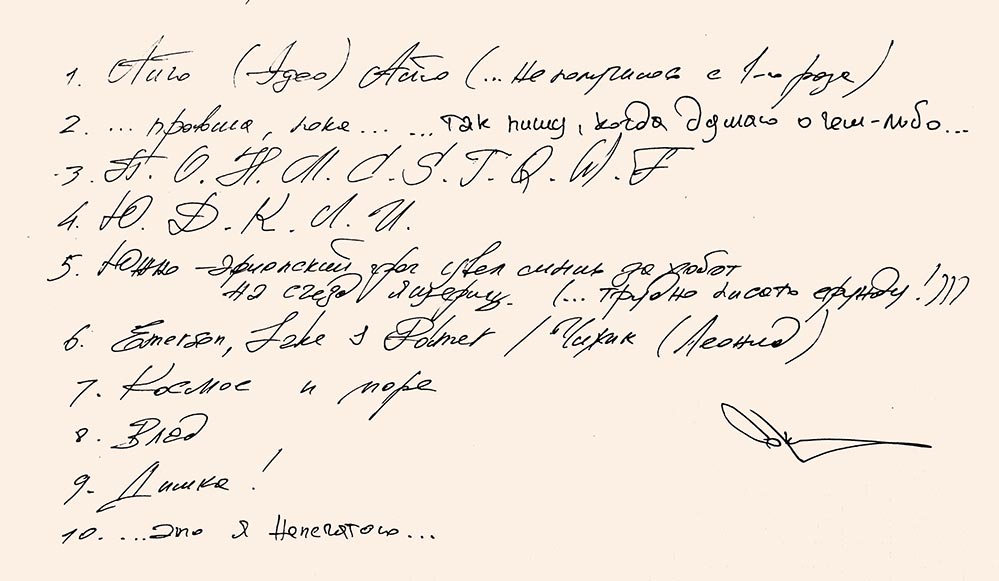 1. Айго (Эдео) Айго (... Не получилось с 1-го раза)
2. ... правша, пока... ...так пишу, когда думаю о чем-либо...
3. П. О. Н. М. С. S. T. Q. W. F
4. Ю. Д. К. Л. И.
5. Южно-эфиопский грач увел мышь за хобот
на съезд ящериц. (... трудно писать ерунду!)))
6. Emerson, Lake & Palmer / Чижик (Леонид)
7. Космос и море
8. Влад
9. Димка!
10. ...это я напечатаю...